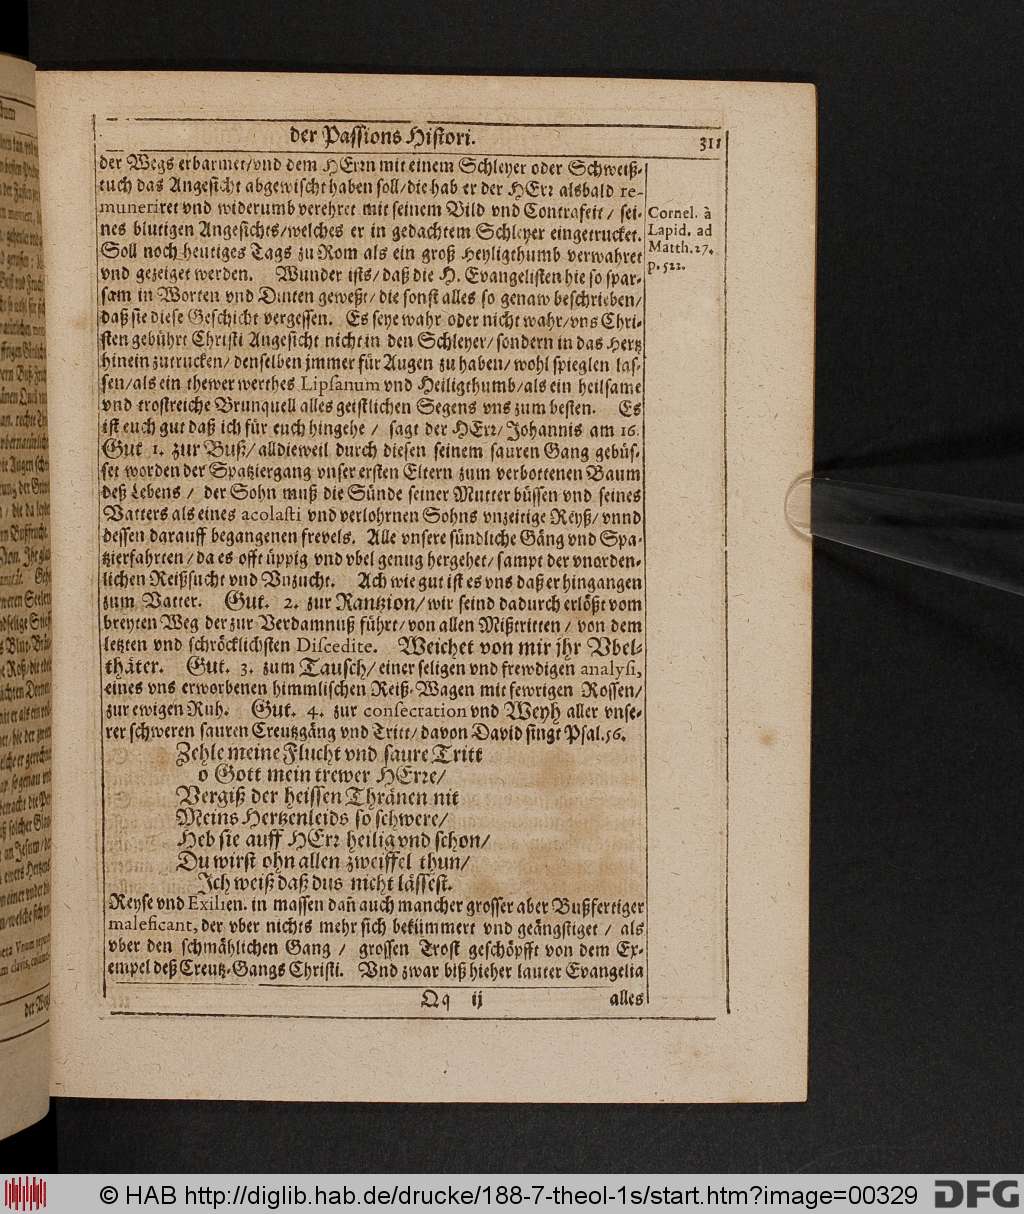 der Passions Histori.
311
der Wegs erbarmet/vnd dem HErrn mit einem Schleyer oder Schweiß-
tuch das Angesicht abgewischt haben soll/die hab er der HErr alsbald re-
muneriret vnd widerumb verehret mit seinem Bild vnd Contrafeit/ sei-
nes blutigen Angesichts/welches er in gedachtem Schleyer eingetrucket.
Soll noch heutiges Tags zu Rom als ein groß Heyligthumb verwahret
vnd gezeiget werden. Wunder ists/ daß die H. Evangelisten hie so spar-
sam in Worten vnd Dinten geweßt/ die sonst alles so genaw beschrieben/
daß sie diese Geschicht vergessen. Es seye wahr oder nicht wahr/vns Chri-
sten gebührt Christi Angesicht nicht in den Schleyer/ sondern in das Hertz
hinein zutrucken/ denselben jmmer für Augen zu haben/ wohl spieglen las-
sen/als ein thewer werthes Lipsanum vnd Heiligthumb/als ein heilsame
vnd trostreiche Brunquell alles geistlichen Segens vns zum besten. Es
ist euch gut daß ich für euch hingehe / sagt der HErr/ Johannis am 16.
Gut 1. zur Buß/ alldieweil durch diesen seinem sauren Gang gebüs-
set worden der Spatziergang vnser ersten Eltern zum verbottenen Baum
deß Lebens / der Sohn muß die Sünde seiner Mutter büssen vnd seines
Vatters als eines acolasti vnd verlohrnen Sohns vnzeitige Reyß/ vnnd
dessen darauff begangenen frevels. Alle vnsere sündliche Gäng vnd Spa-
tzierfahrten/ da es offt üppig vnd vbel genug hergehet/ sampt der vnorden-
lichen Reißsucht vnd Vnzucht. Ach wie gut ist es vns daß er hingangen
zum Vatter. Gut. 2. zur Rantzion/ wir seind dadurch erlößt vom
breyten Weg der zur Verdamnuß führt/ von allen Mißtritten/ von dem
letzten vnd schröcklichsten Discedite. Weichet von mir jhr Vbel-
thäter. Gut. 3. zum Tausch/ einer seligen vnd frewdigen analysi,
eines vns erworbenen himmlischen Reiß-Wagen mit fewrigen Rossen/
zur ewigen Ruh. Gut. 4. zur consecration vnd Weyh aller vnse-
rer schweren sauren Creutzgäng vnd Tritt/ davon David singt Psal. 56.
Zehle meine Flucht vnd saure Tritt
o Gott mein trewer HErre/
Vergiß der heissen Thränen nit
Meins Hertzenleids so schwere/
Heb sie auff HErr heilig vnd schon/
Du wirst ohn allen zweiffel thun/
Ich weiß daß dus nicht lässest.
Reyse vnd Exilien. in massen dañ auch mancher grosser aber Bußfertiger
maleficant, der vber nichts mehr sich bekümmert vnd geängstiget / als
vber den schmählichen Gang / grossen Trost geschöpfft von dem Ex-
empel deß Creutz-Gangs Christi. Vnd zwar biß hieher lauter Evangelia
Qq ij
alles
Cornel. à
Lapid. ad
Matth. 27.
p. 522.
© HAB http://diglib.hab.de/drucke/188-7-theol-1s/start.htm?image=00329
DFG